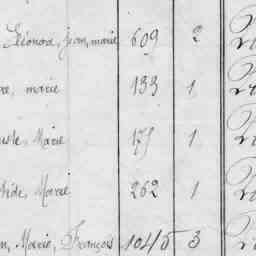 Léonard, jean, marie 609 2
re, marie 133 1
uste, Marie 175 1
Marie 262 1
n, Marie, François 1045 3